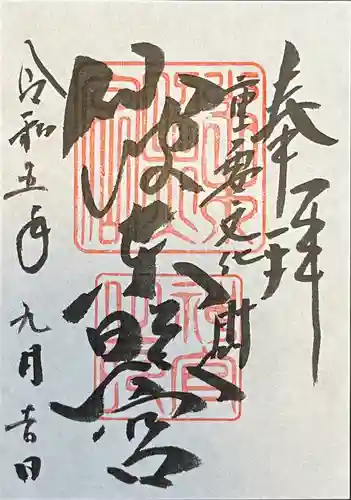 奉拝
重要文化財
仙波東照宮
令和五年 九月吉日